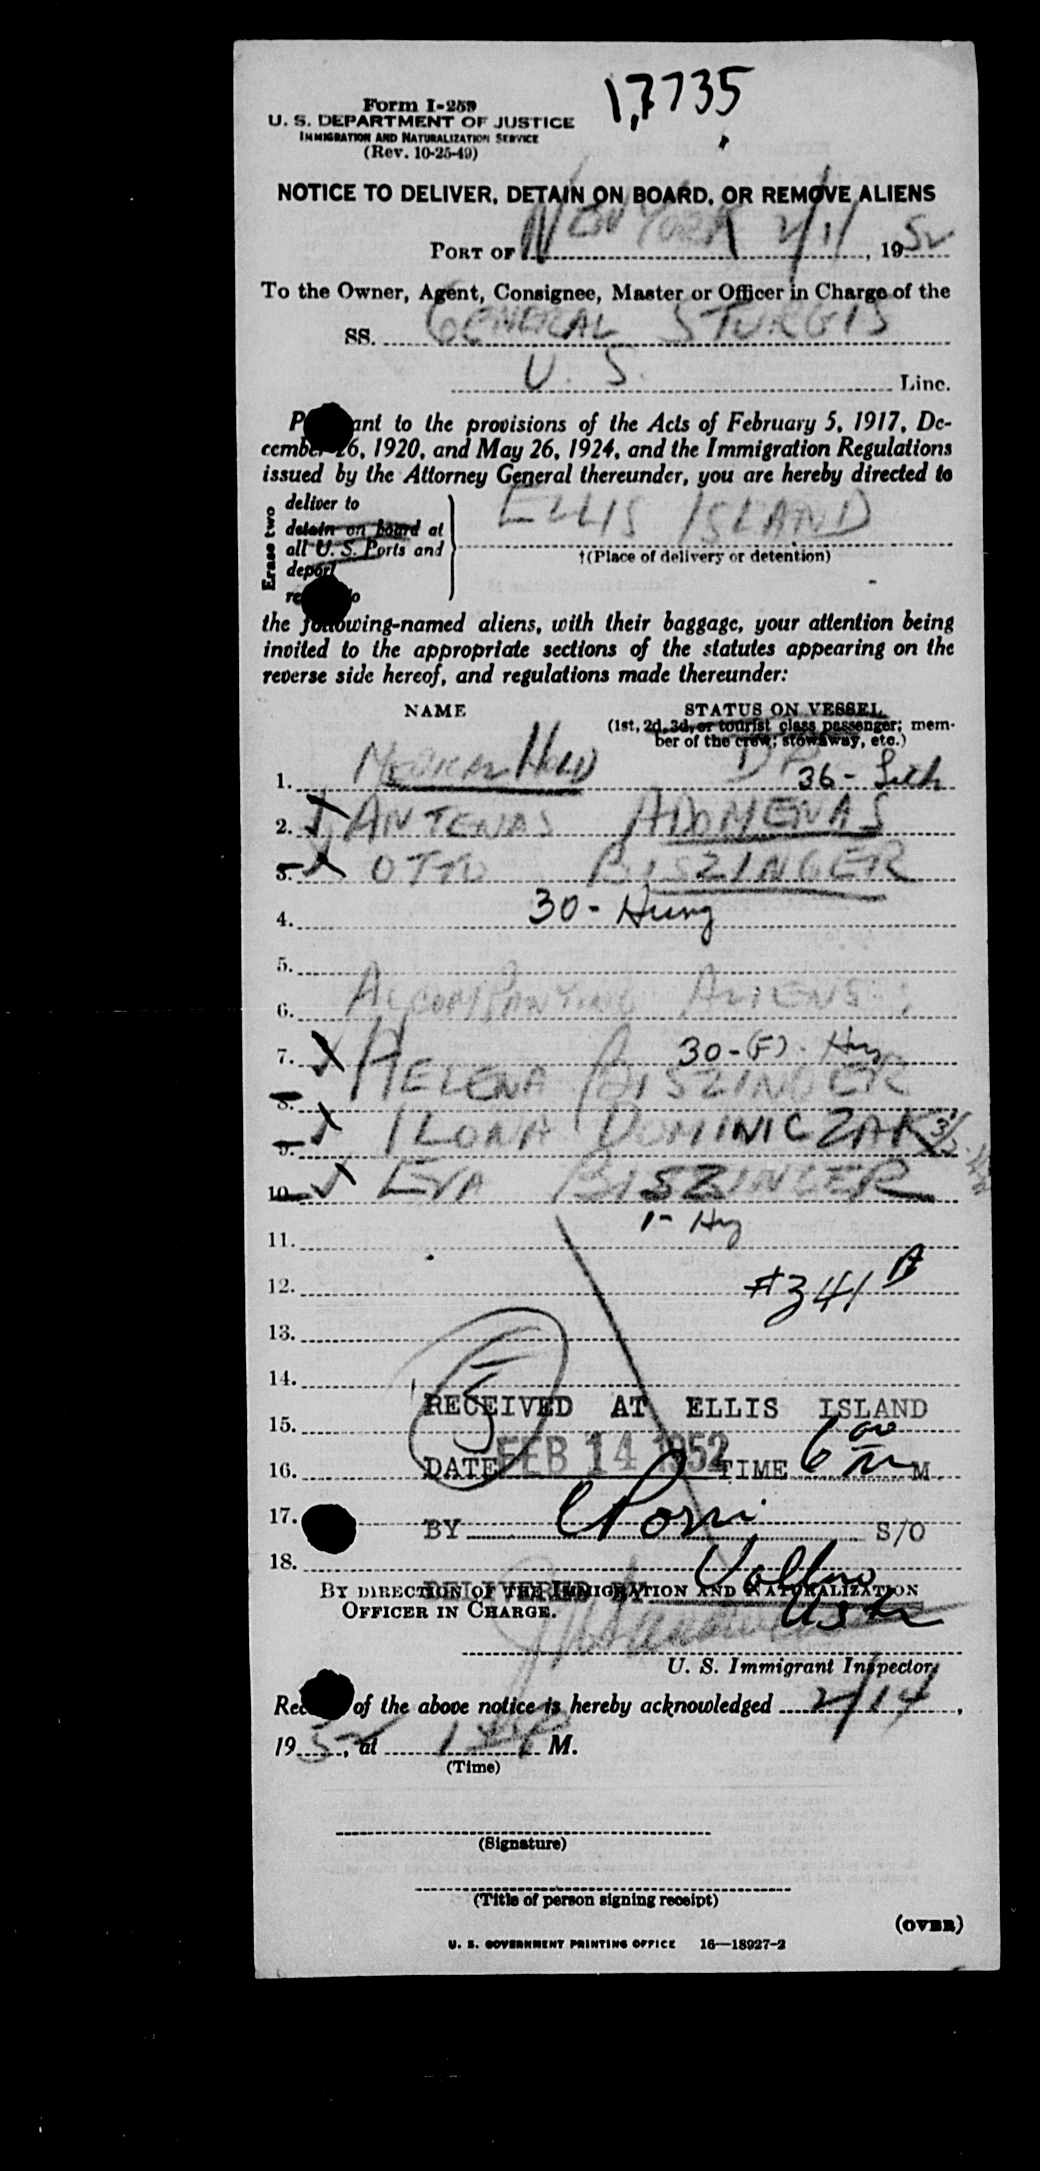 17735
Form I-259
U. S. DEPARTMENT OF JUSTICE
IMMIGRATION AND NATURALIZATION SERVICE
(Rev. 10-25-49)
NOTICE TO DELIVER, DETAIN ON BOARD, OR REMOVE ALIENS
PORT OF NEW YORK 2/11/, 1952
To the Owner, Agent, Consignee, Master or Officer in Charge of the
SS. GENERAL STURGIS
U. S. Line.
ant to the provisions of the Acts of February 5, 1917, De-
cember 26, 1920, and May 26, 1924, and the Immigration Regulations
issued by the Attorney General thereunder, you are hereby directed to
Erase two
deliver to
detain on board at
all U. S. Ports and
deport
ELLIS ISLAND
†(Place of delivery or detention)
the following-named aliens, with their baggage, your attention being
invited to the appropriate sections of the statutes appearing on the
reverse side hereof, and regulations made thereunder:
NAME STATUS ON VESSEL
(1st, 2d, 3d, or tourist class passenger; mem-
ber of the crew; stowaway, etc.)
1. MEDICAL HOLD DP 36 - Lith
2. ANTENAS ADOMENAS
3. OTTO BISZINGER
4. 30 - Hung
5.
6. ACCOMPANYING ALIENS:
7. 30-(F)
HELENA BISZINGER
8.
9. ILONA DOMINICZAK
10. EVA BISZINGER
11. 1 -
12. #341 A
13.
14.
5
RECEIVED AT ELLIS ISLAND
15.
16. DATE FEB 14 1952 TIME 6 00 M.
17. BY S/O
18.
BY DIRECTION OF THE IMMIGRATION AND NATURALIZATION
OFFICER IN CHARGE.
U. S. Immigrant Inspector.
of the above notice is hereby acknowledged 2/14,
1952, at M.
(Time)
(Signature)
(Title of person signing receipt)
(OVER)
U. S. GOVERNMENT PRINTING OFFICE 16—18927-2